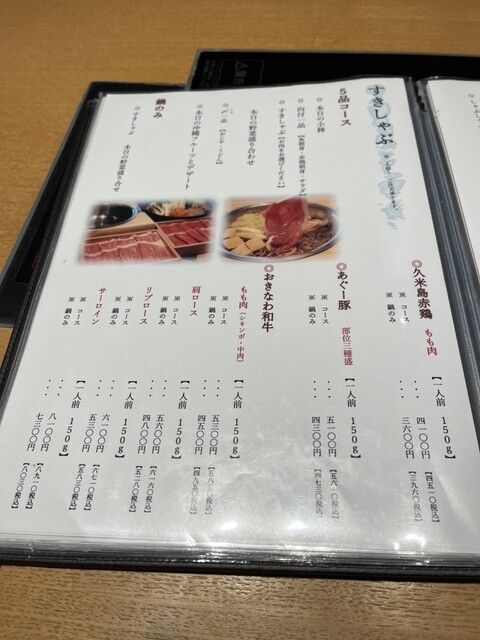 すきしゃぶ
5品コース
◎本日の小鉢
◎向付一品【魚刺身・赤鶏刺身・サラダ】
◎すきしゃぶ【お肉をお選びください】
本日の野菜盛り合わせ
◎〆一品
◎本日の沖縄フルーツとデザート
鍋のみ
◎すきしゃぶ
本日の野菜盛り合せ
◎久米島赤鶏 もも肉
【一人前 150g】
※コース ・・ 四一〇〇円【四五一〇税込】
※鍋のみ ・・ 三六〇〇円【三九六〇税込】
◎あぐー豚 部位三種盛
【一人前 150g】
※コース ・・ 五一〇〇円【五六一〇税込】
※鍋のみ ・・ 四三〇〇円【四七三〇税込】
◎おきなわ和牛
もも肉(シキンボ・中肉)
【一人前 150g】
※コース ・・ 五三〇〇円【五八三〇税込】
※鍋のみ ・・ 四五〇〇円【四九五〇税込】
肩ロース
【一人前 150g】
※コース ・・ 五六〇〇円【六一六〇税込】
※鍋のみ ・・ 四八〇〇円【五二八〇税込】
リブロース
【一人前 150g】
※コース ・・ 六一〇〇円【六七一〇税込】
※鍋のみ ・・ 五三〇〇円【五八三〇税込】
サーロイン
【一人前 150g】
※コース ・・ 八一〇〇円【八九一〇税込】
※鍋のみ ・・ 七三〇〇円【八〇三〇税込】